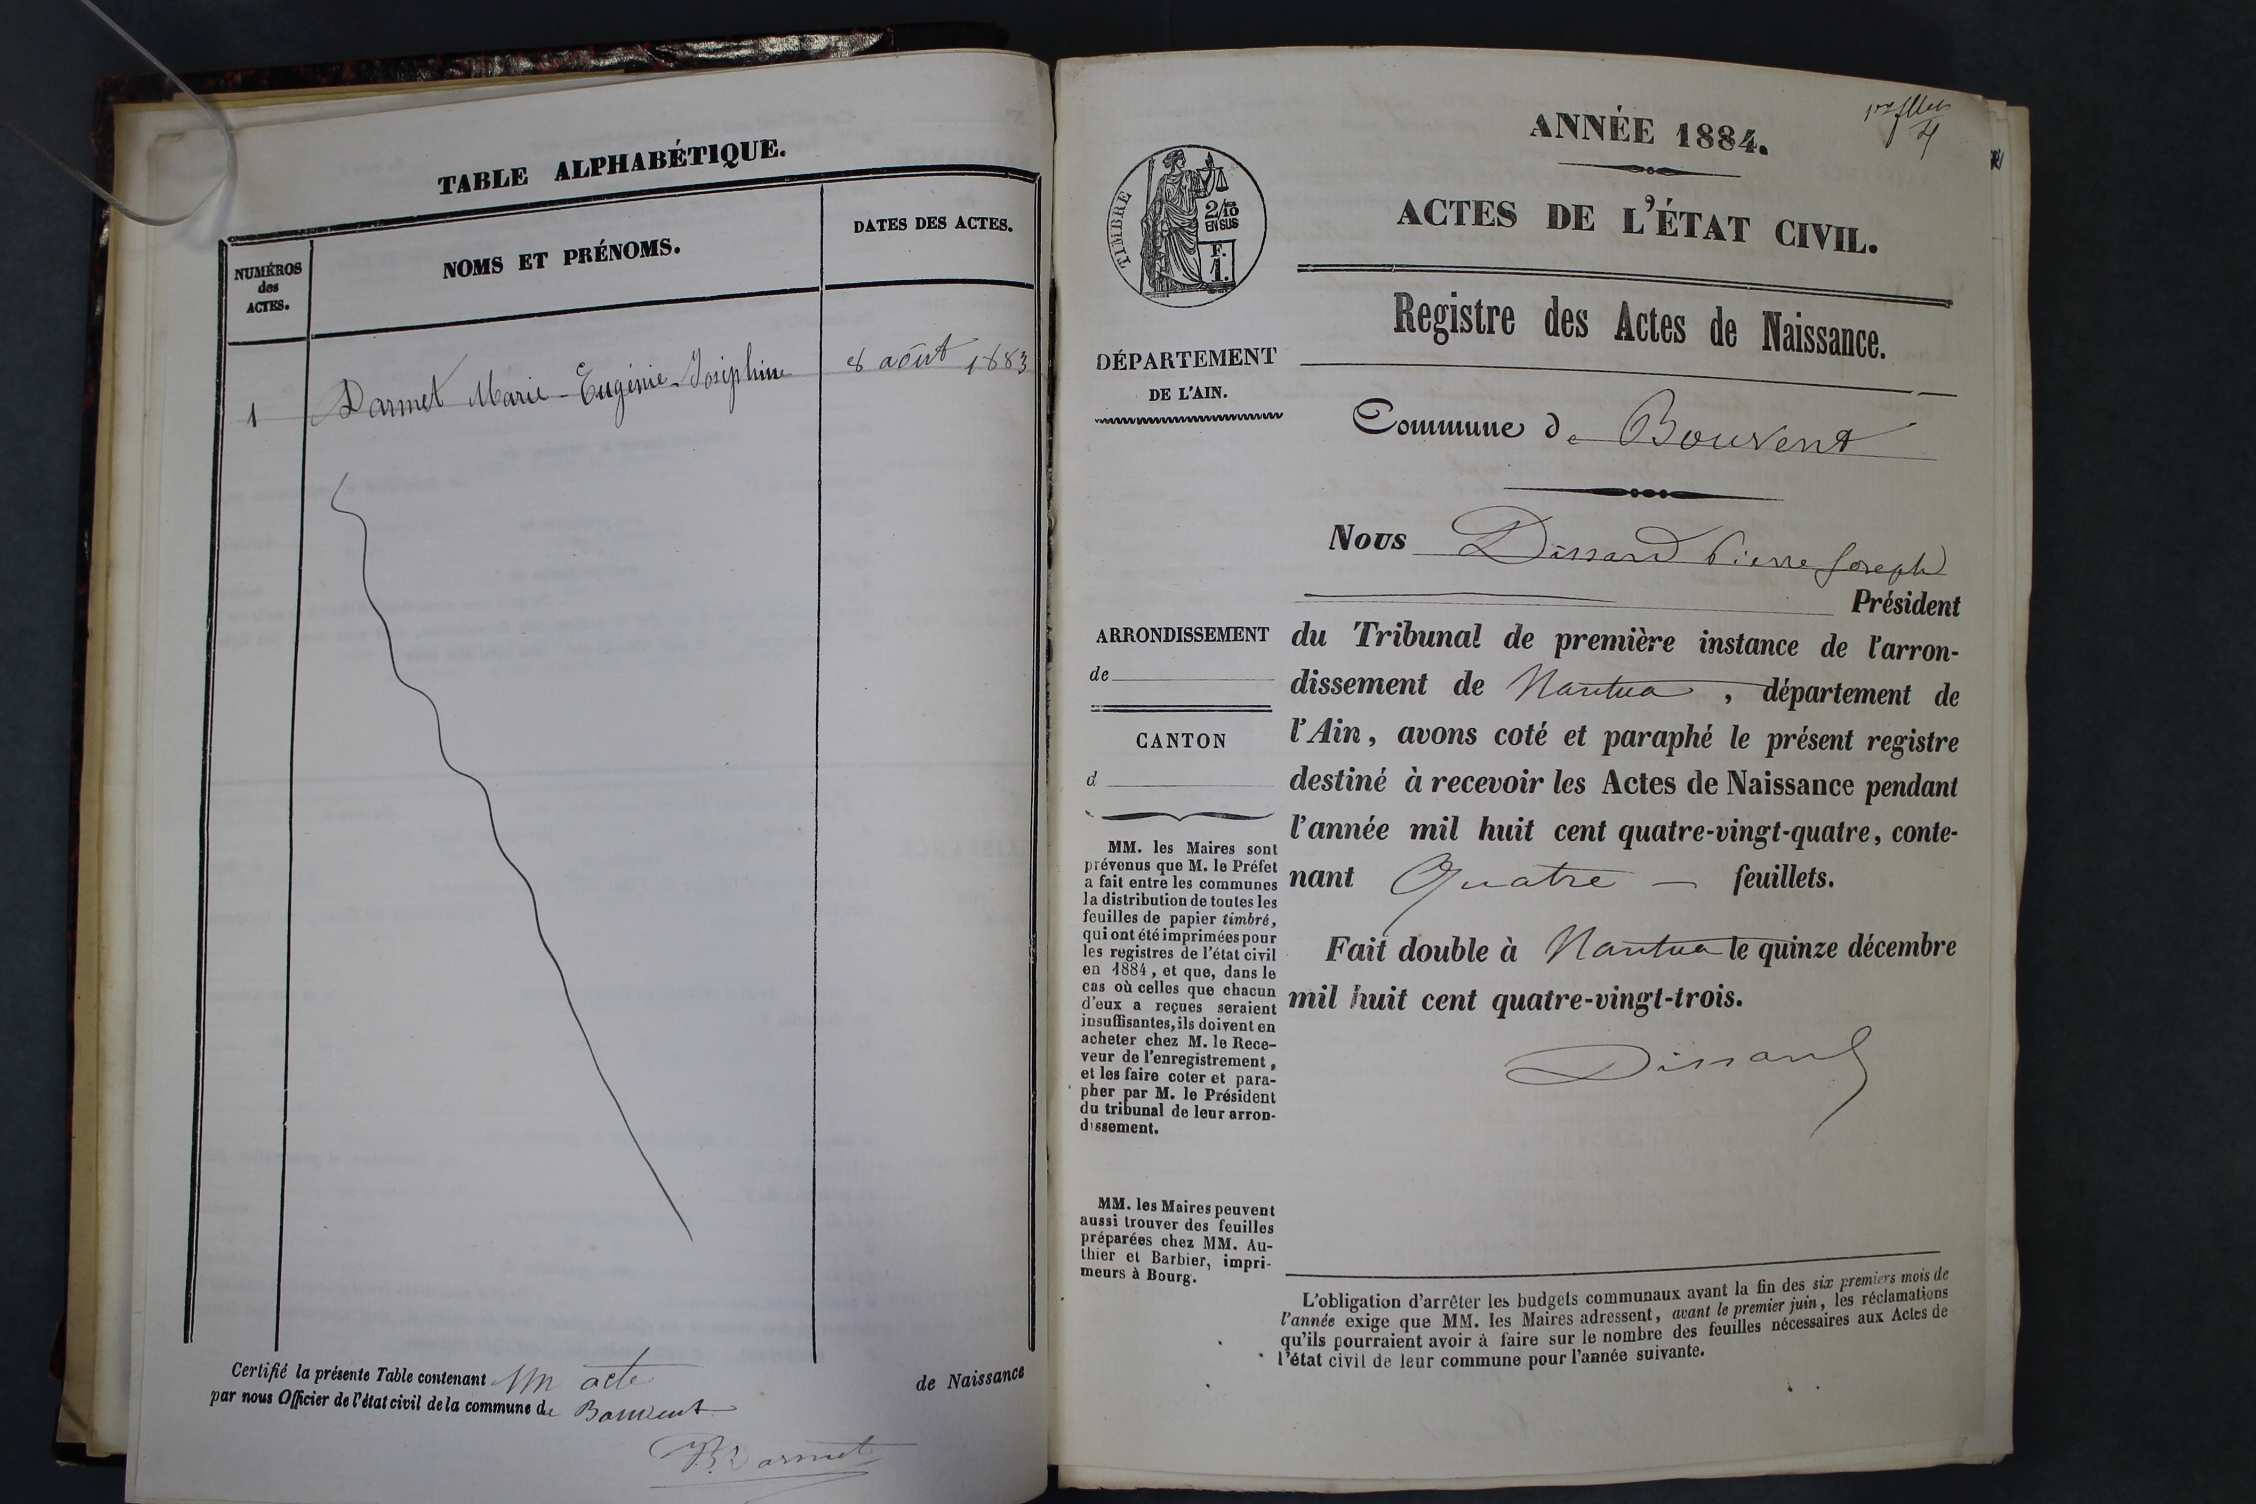 TABLE ALPHABÉTIQUE.
NUMÉROS
des
ACTES.
NOMS ET PRÉNOMS.
DATES DES ACTES.
1 Darmet Marie-Eugénie-Joséphine 8 août 1883
Certifié la présente Table contenant un acte de Naissance
par nous Officier de l'état civil de la commune de Bouvent
Darmet
ANNÉE 1884.
ACTES DE L'ÉTAT CIVIL.
TIMBRE
2/10
EN SUS
F.
1.
Registre des Actes de Naissance.
DÉPARTEMENT
DE L'AIN.
Commune de Bouvent
Nous Dissard Pierre Joseph
Président
du Tribunal de première instance de l'arron-
dissement de Nantua, département de
l'Ain, avons coté et paraphé le présent registre
destiné à recevoir les Actes de Naissance pendant
l'année mil huit cent quatre-vingt-quatre, conte-
nant Quatre — feuillets.
Fait double à Nantua le quinze décembre
mil huit cent quatre-vingt-trois.
Dissard
ARRONDISSEMENT
de
CANTON
d
MM. les Maires sont
prévenus que M. le Préfet
a fait entre les communes
la distribution de toutes les
feuilles de papier timbré,
qui ont été imprimées pour
les registres de l'état civil
en 1884, et que, dans le
cas où celles que chacun
d'eux a reçues seraient
insuffisantes, ils doivent en
acheter chez M. le Rece-
veur de l'enregistrement,
et les faire coter et para-
pher par M. le Président
du tribunal de leur arron-
dissement.
MM. les Maires peuvent
aussi trouver des feuilles
préparées chez MM. Au-
thier et Barbier, impri-
meurs à Bourg.
L'obligation d'arrêter les budgets communaux avant la fin des six premiers mois de
l'année exige que MM. les Maires adressent, avant le premier juin, les réclamations
qu'ils pourraient avoir à faire sur le nombre des feuilles nécessaires aux Actes de
l'état civil de leur commune pour l'année suivante.